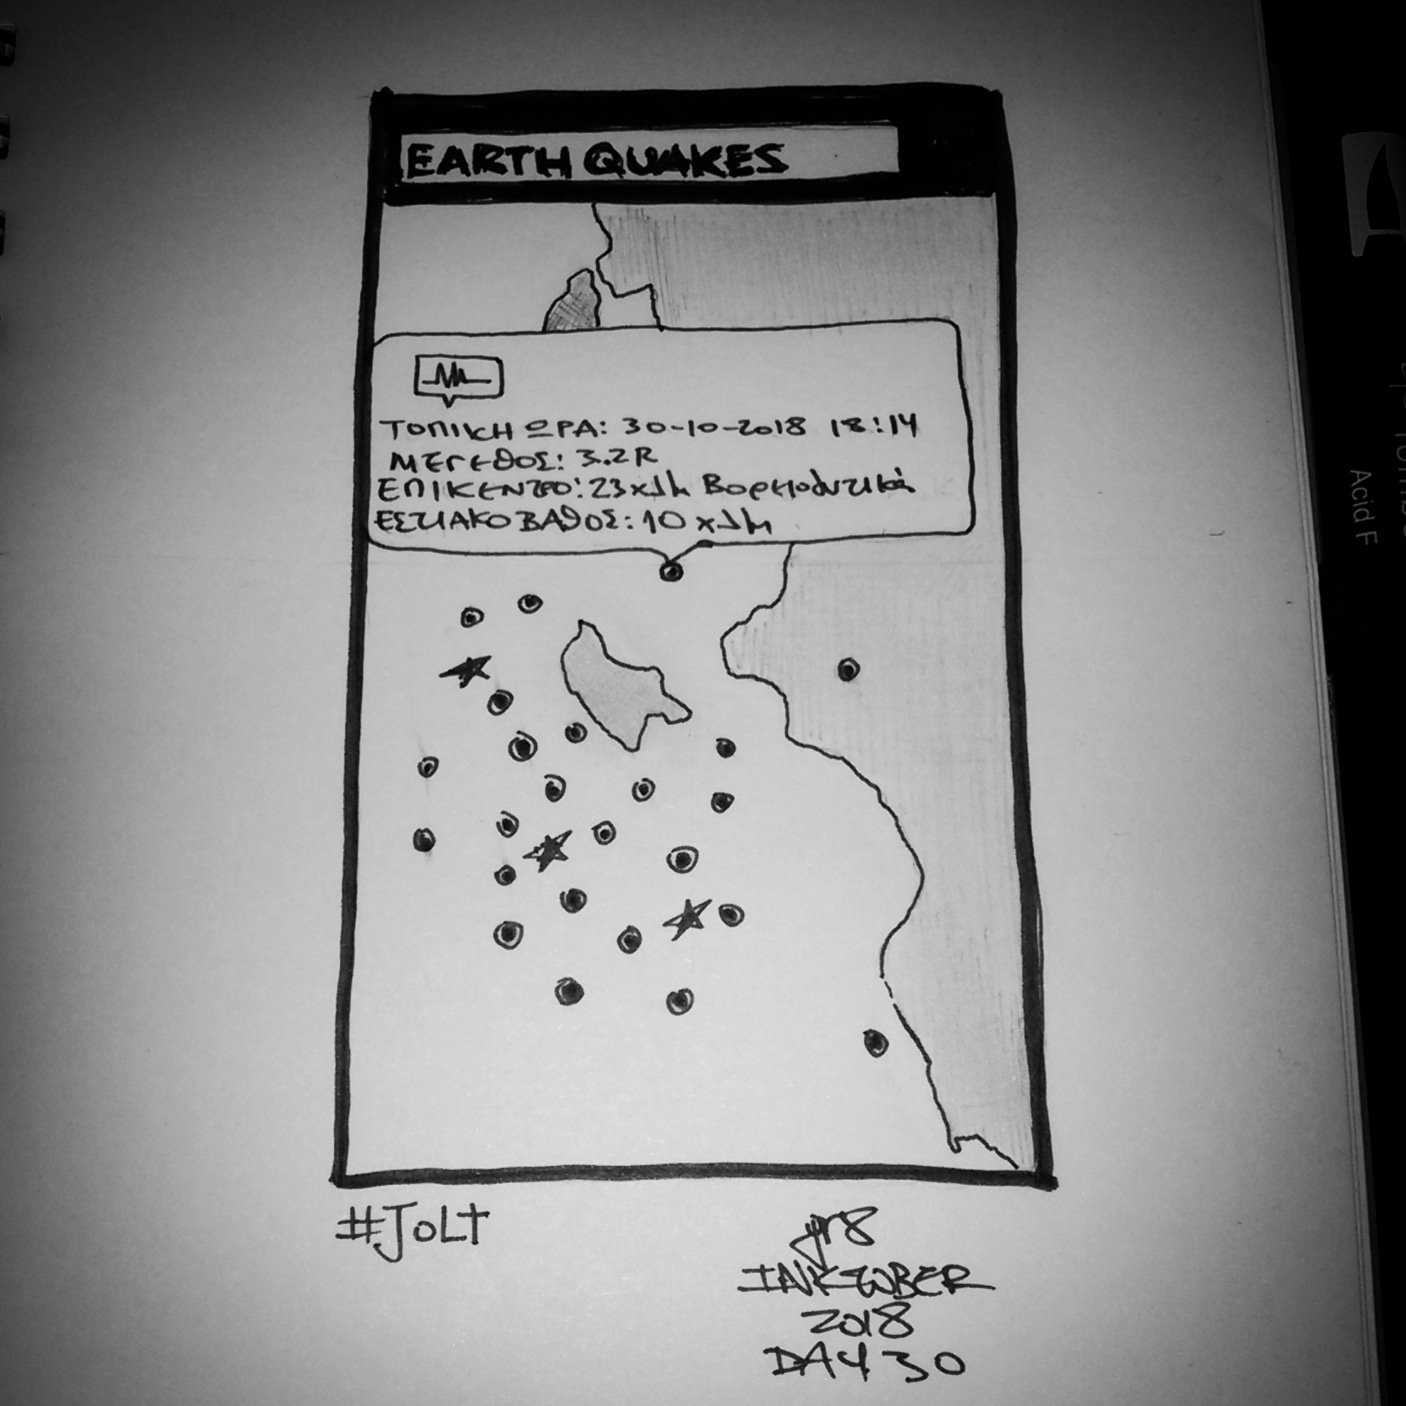 EARTH QUAKES
ΤΟΠΙΚΗ ΩΡΑ: 30-10-2018 18:14
ΜΕΓΕΘΟΣ: 3.2R
ΕΠΙΚΕΝΤΡΟ: 23 χλμ Βορειοδυτικά
ΕΣΤΙΑΚΟ ΒΑΘΟΣ: 10 χλμ
#JOLT
yr8
INKTOBER
2018
DAY 30
Acid F